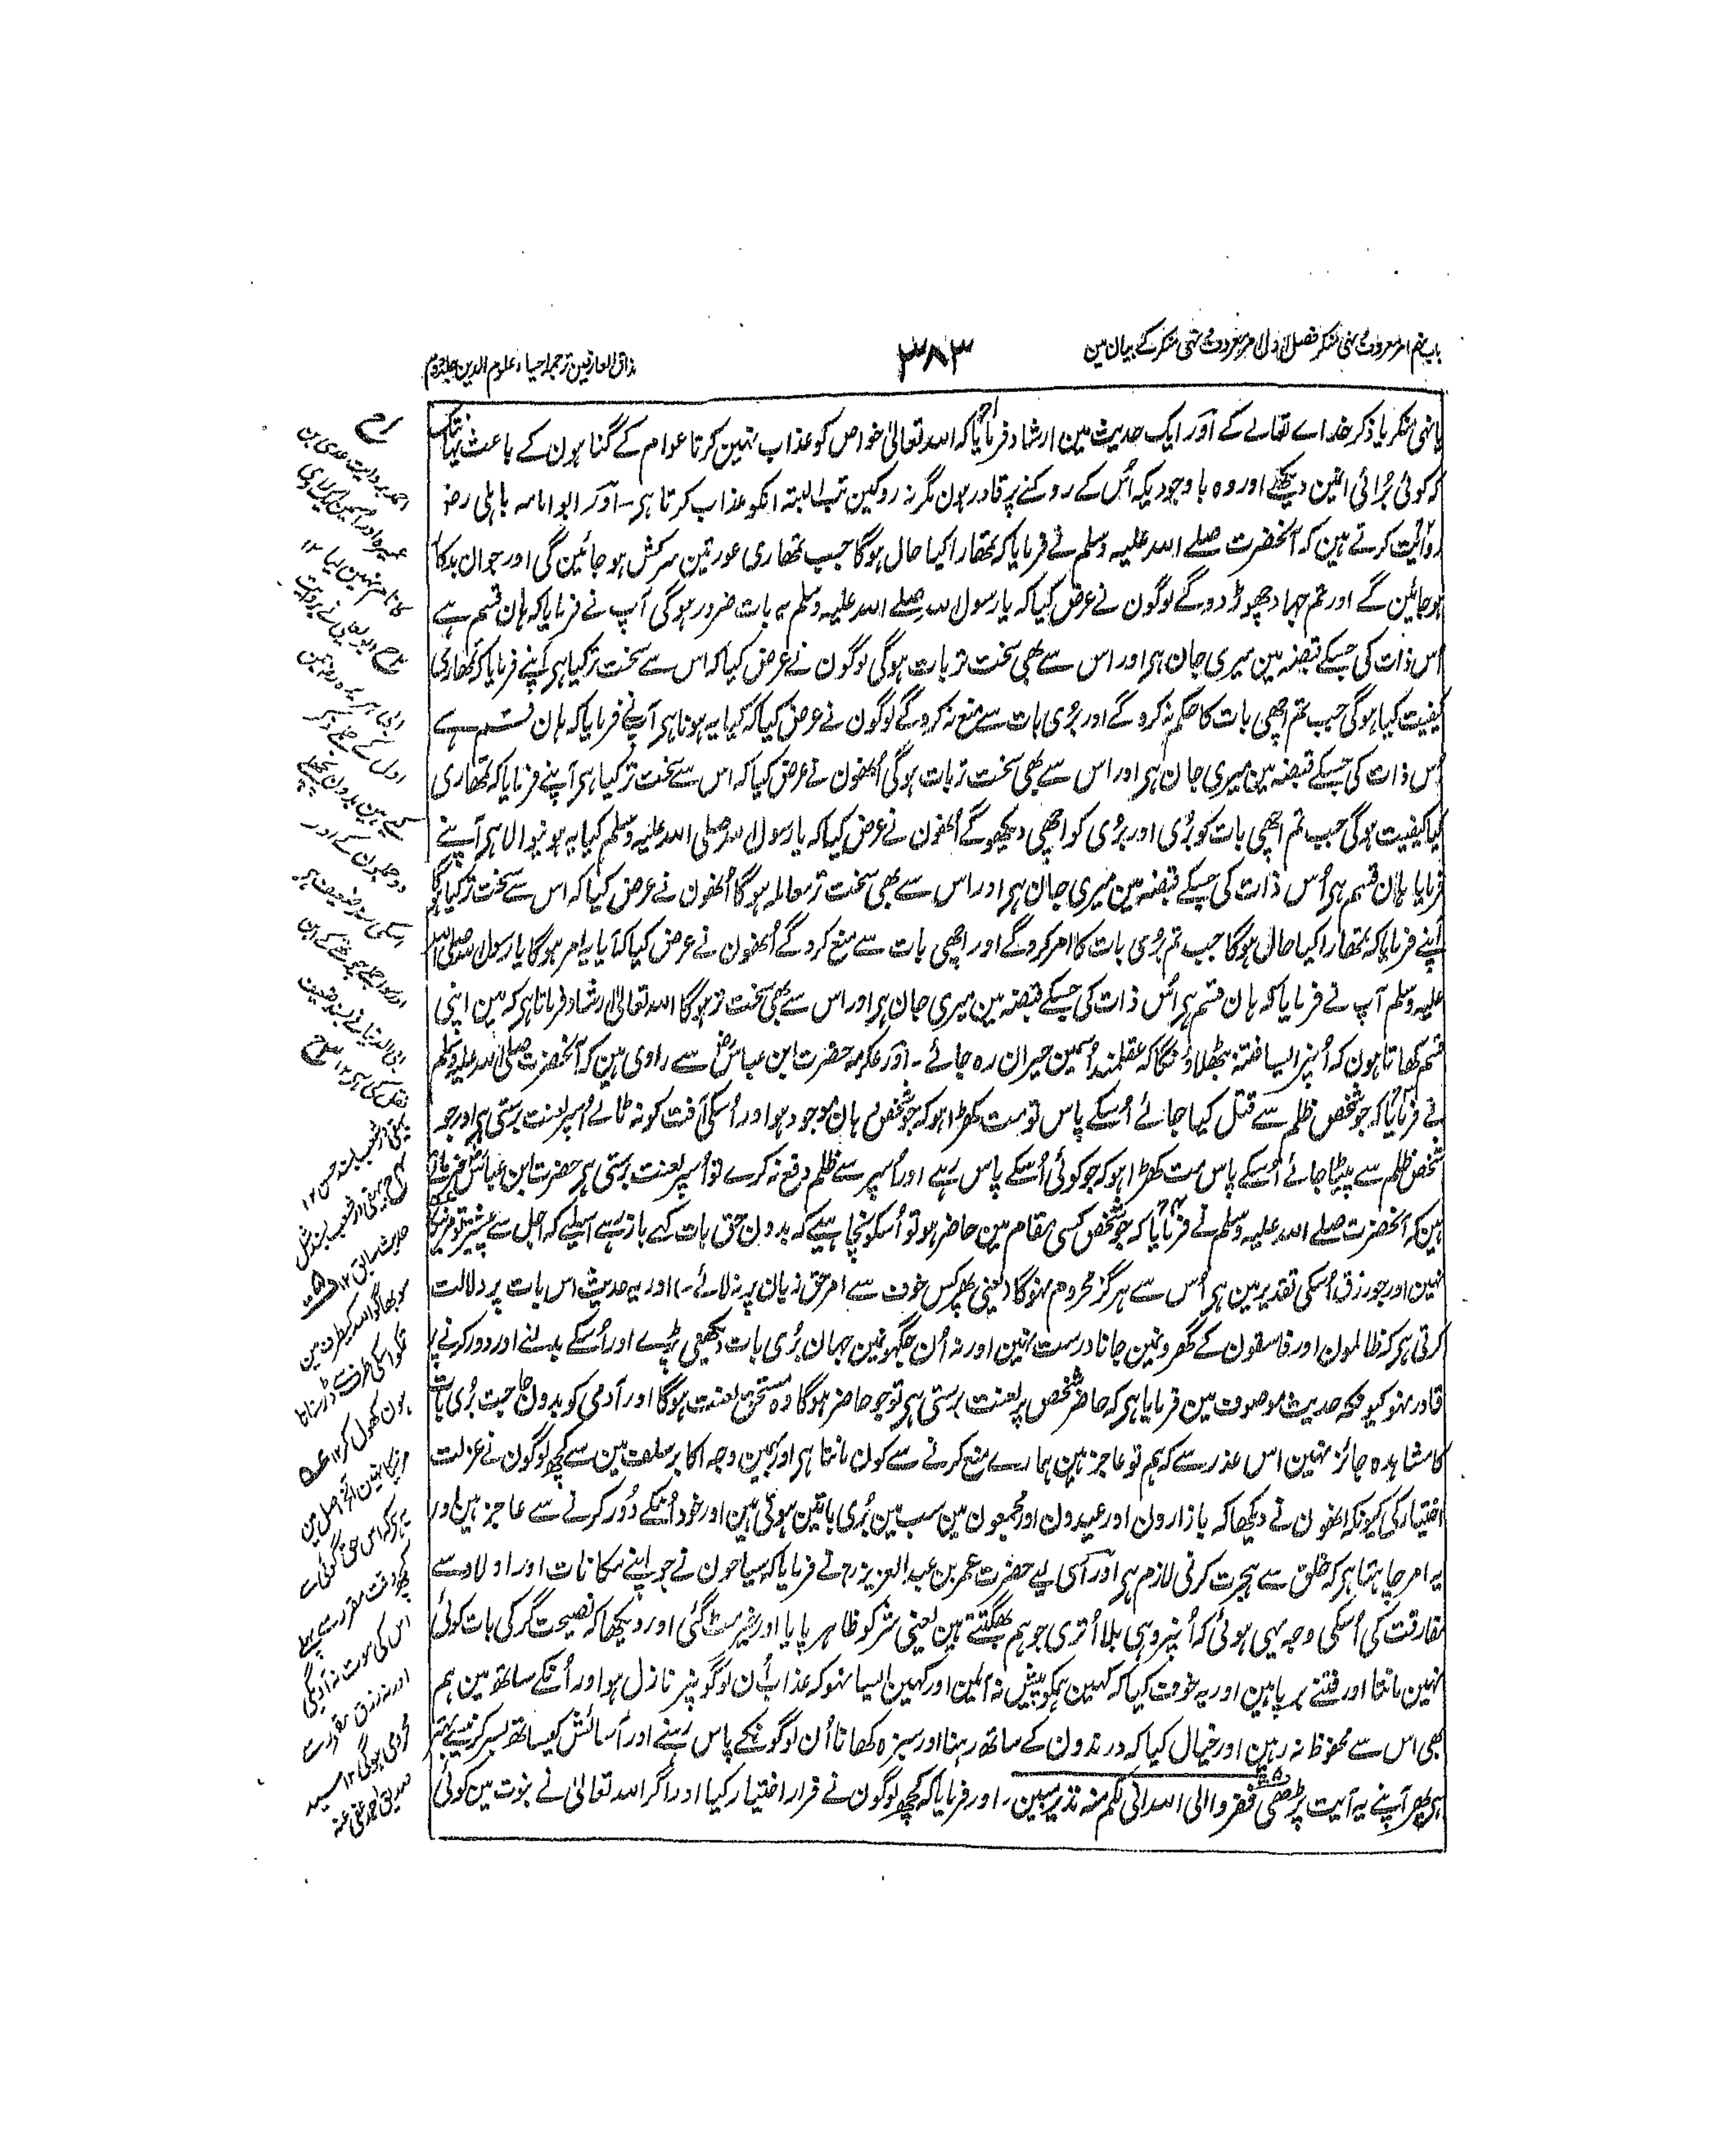 باب نہم امر معروف و نہی منکر فصل اول امر معروف و نہی منکر کے بیان مین
۳۸۳
مذاق العارفین ترجمہ احیاء علوم الدین جلد دوم
یا نہی منکر یا ذکر خداے تعالے کے آور ایک حدیث مین ارشاد فرمایا کہ اللہ تعالیٰ خواص کو عذاب نہین کرتا عوام کے گناہون کے باعث یہانتک
کہ کوئی برائی انمین دیکھے اور وہ باوجودیکہ اُس کے روکنے پر قادر ہون مگر نہ روکین تب البتہ انکو عذاب کرتا ہی۔ آور ابو امامہ باہلی رضہ
روایت کرتے ہین کہ آنحضرت صلے اللہ علیہ وسلم نے فرمایا کہ تمھارا کیا حال ہوگا جب تمھاری عورتین سرکش ہو جائین گی اور جوان بدکار
ہوجائین گے اور تم جہاد چھوڑ دو گے لوگون نے عرض کیا کہ یا رسول اللہ صلے اللہ علیہ وسلم یہ بات ضرور ہوگی آپ نے فرمایا کہ ہان قسم ہے
اُس ذات کی جسکے قبضہ مین میری جان ہی اور اس سے بھی سخت تر بات ہوگی لوگون نے عرض کیا کہ اس سے سخت تر کیا ہی آپنے فرمایا کہ تمھاری
کیفیت کیا ہوگی جب تم اچھی بات کا حکم نہ کرو گے اور بُری بات سے منع نہ کروگے لوگون نے عرض کیا کہ کیا یہ ہونا ہی آپنے فرمایا کہ ہان قسم ہے
اُس ذات کی جسکے قبضہ مین میری جان ہی اور اس سے بھی سخت تر بات ہوگی اُنھون نے عرض کیا کہ اس سے سخت تر کیا ہی آپنے فرمایا کہ تمھاری
کیا کیفیت ہوگی جب تم اچھی بات کو بُری اور بُری کو اچھی دیکھو گے اُنھون نے عرض کیا کہ یا رسول اللہ صلی اللہ علیہ وسلم کیا یہ ہونیوالا ہی آپنے
فرمایا ہان قسم ہی اُس ذات کی جسکے قبضہ مین میری جان ہی اور اس سے بھی سخت تر معاملہ ہوگا اُنھون نے عرض کیا کہ اس سے سخت تر کیا ہوگا
آپنے فرمایا کہ تمھارا کیا حال ہوگا جب تم بُری بات کا امر کروگے اور اچھی بات سے منع کروگے اُنھون نے عرض کیا کہ آیا یہ امر ہوگا یا رسول اللہ صلی اللہ
علیہ وسلم آپ نے فرمایا کہ ہان قسم ہی اُس ذات کی جسکے قبضہ مین میری جان ہی اور اس سے بھی سخت تر ہوگا اللہ تعالیٰ ارشاد فرماتا ہی کہ مین اپنی
قسم کھاتا ہون کہ اُنپر ایسا فتنہ بٹھلاؤنگا کہ عقلمند اُسمین حیران رہ جائے۔ آور عکرمہ حضرت ابن عباس رضہ سے راوی ہین کہ آنحضرت صلی اللہ علیہ وسلم
نے فرمایا کہ جو شخص ظلم سے قتل کیا جائے اُسکے پاس تو مت کھڑا ہو کہ جو شخص وہان موجود ہو اور اُسکی آفت کو نہ ٹالے اُسپر لعنت برستی ہی اور جو
شخص ظلم سے پیٹا جائے اُسکے پاس مت کھڑا ہو کہ جو کوئی اُسکے پاس رہے اور اُسپر سے ظلم دفع نہ کرے تو اُسپر لعنت برستی ہی حضرت ابن عباس رضہ فرماتے
ہین کہ آنحضرت صلے اللہ علیہ وسلم نے فرمایا کہ جو شخص کسی مقام مین حاضر ہو تو اُسکو نچاہیے کہ بدون حق بات کہے باز رہے اسلیے کہ اجل سے پیشتر تو مریگا
نہین اور جو رزق اُسکی تقدیر مین ہی اُس سے ہرگز محروم نہوگا (یعنی پھر کس خوف سے امر حق زبان پر نہ لائے۔) اور یہ حدیث اس بات پر دلالت
کرتی ہی کہ ظالمون اور فاسقون کے گھرونمین جانا درست نہین اور نہ اُن جگہونمین جہان بُری بات دیکھنی پڑے اور اُسکے بدلنے اور دور کرنے پر
قادر نہو کیونکہ حدیث موصوف مین فرمایا ہی کہ حاضر شخص پر لعنت برستی ہی تو جو حاضر ہوگا وہ مستحق لعنت ہوگا اور آدمی کو بدون حاجت بُری بات
کا مشاہدہ جائز نہین اس عذر سے کہ ہم تو عاجز ہین ہمارے منع کرنے سے کون مانتا ہی اور بہمین وجہ اکابر سلف مین سے کچھ لوگون نے عزلت
اختیار کی کیونکہ انھون نے دیکھا کہ بازارون اور عیدون اور مجمعون مین سب مین بُری باتین ہوتی ہین اور خود اُنکے دُور کرنے سے عاجز ہین اور
یہ امر چاہتا ہی کہ خلق سے ہجرت کرنی لازم ہی اور آسی لیے حضرت عمر بن عبدالعزیز رحہ نے فرمایا کہ سیاحون نے جو اپنے مکانات اور اولاد سے
مفارقت کی اُسکی وجہ یہی ہوئی کہ اُنپر وہی بلا اُتری جو ہم بھگتتے ہین یعنی شر کو ظاہر پایا اور خیر مٹ گئی اور دیکھا کہ نصیحت گر کی بات کوئی
نہین مانتا اور فتنے برپا ہین اور یہ خوف کیا کہ کہین ہمکو پیش نہ آلین اور کہین ایسا نہو کہ عذاب اُن لوگونپر نازل ہو اور اُنکے ساتھ مین ہم
بھی اس سے محفوظ نہ رہین اور خیال کیا کہ درندون کے ساتھ رہنا اور سبزہ کھانا اُن لوگونکے پاس رہنے اور آسائش کیساتھ بسر کرنیسے بہتر
ہی پھر آپنے یہ آیت پڑھی ففروا الی اللہ انی لکم منہ نذیر مبین۔ اور فرمایا کہ کچھ لوگون نے فرار اختیار کیا اور اگر اللہ تعالیٰ نے نبوت مین کوئی
احمد بروایت عدی بن
عمیرہ اور اُسمین ایک راوی
کا نام نہین لیا ۱۲
ابی ہریرہ رضہ مین
اول کے جملے ذکر
کیے ہین بدون پچھلے
دو جملون کے اور
اسکی سند ضعیف ہی
ابن ابی الدنیا نے بسند ضعیف
نقل کی ہی ۱۲
بیہقی در شعب بسند حسن ۱۲
بیہقی در شعب بسند مثل
حدیث سابق ۱۲
سو بھاگو اللہ کیطرف مین
تمکو اسکی طرف سے ڈر سناتا
ہون کھول کر ۱۲
کچھ وقت مقرر سے پہلے
اس کی موت نہ آویگی
اور نہ رزق مقدر سے
محرومی ہوگی ۱۲ سید
صدیق احمد عفی عنہ